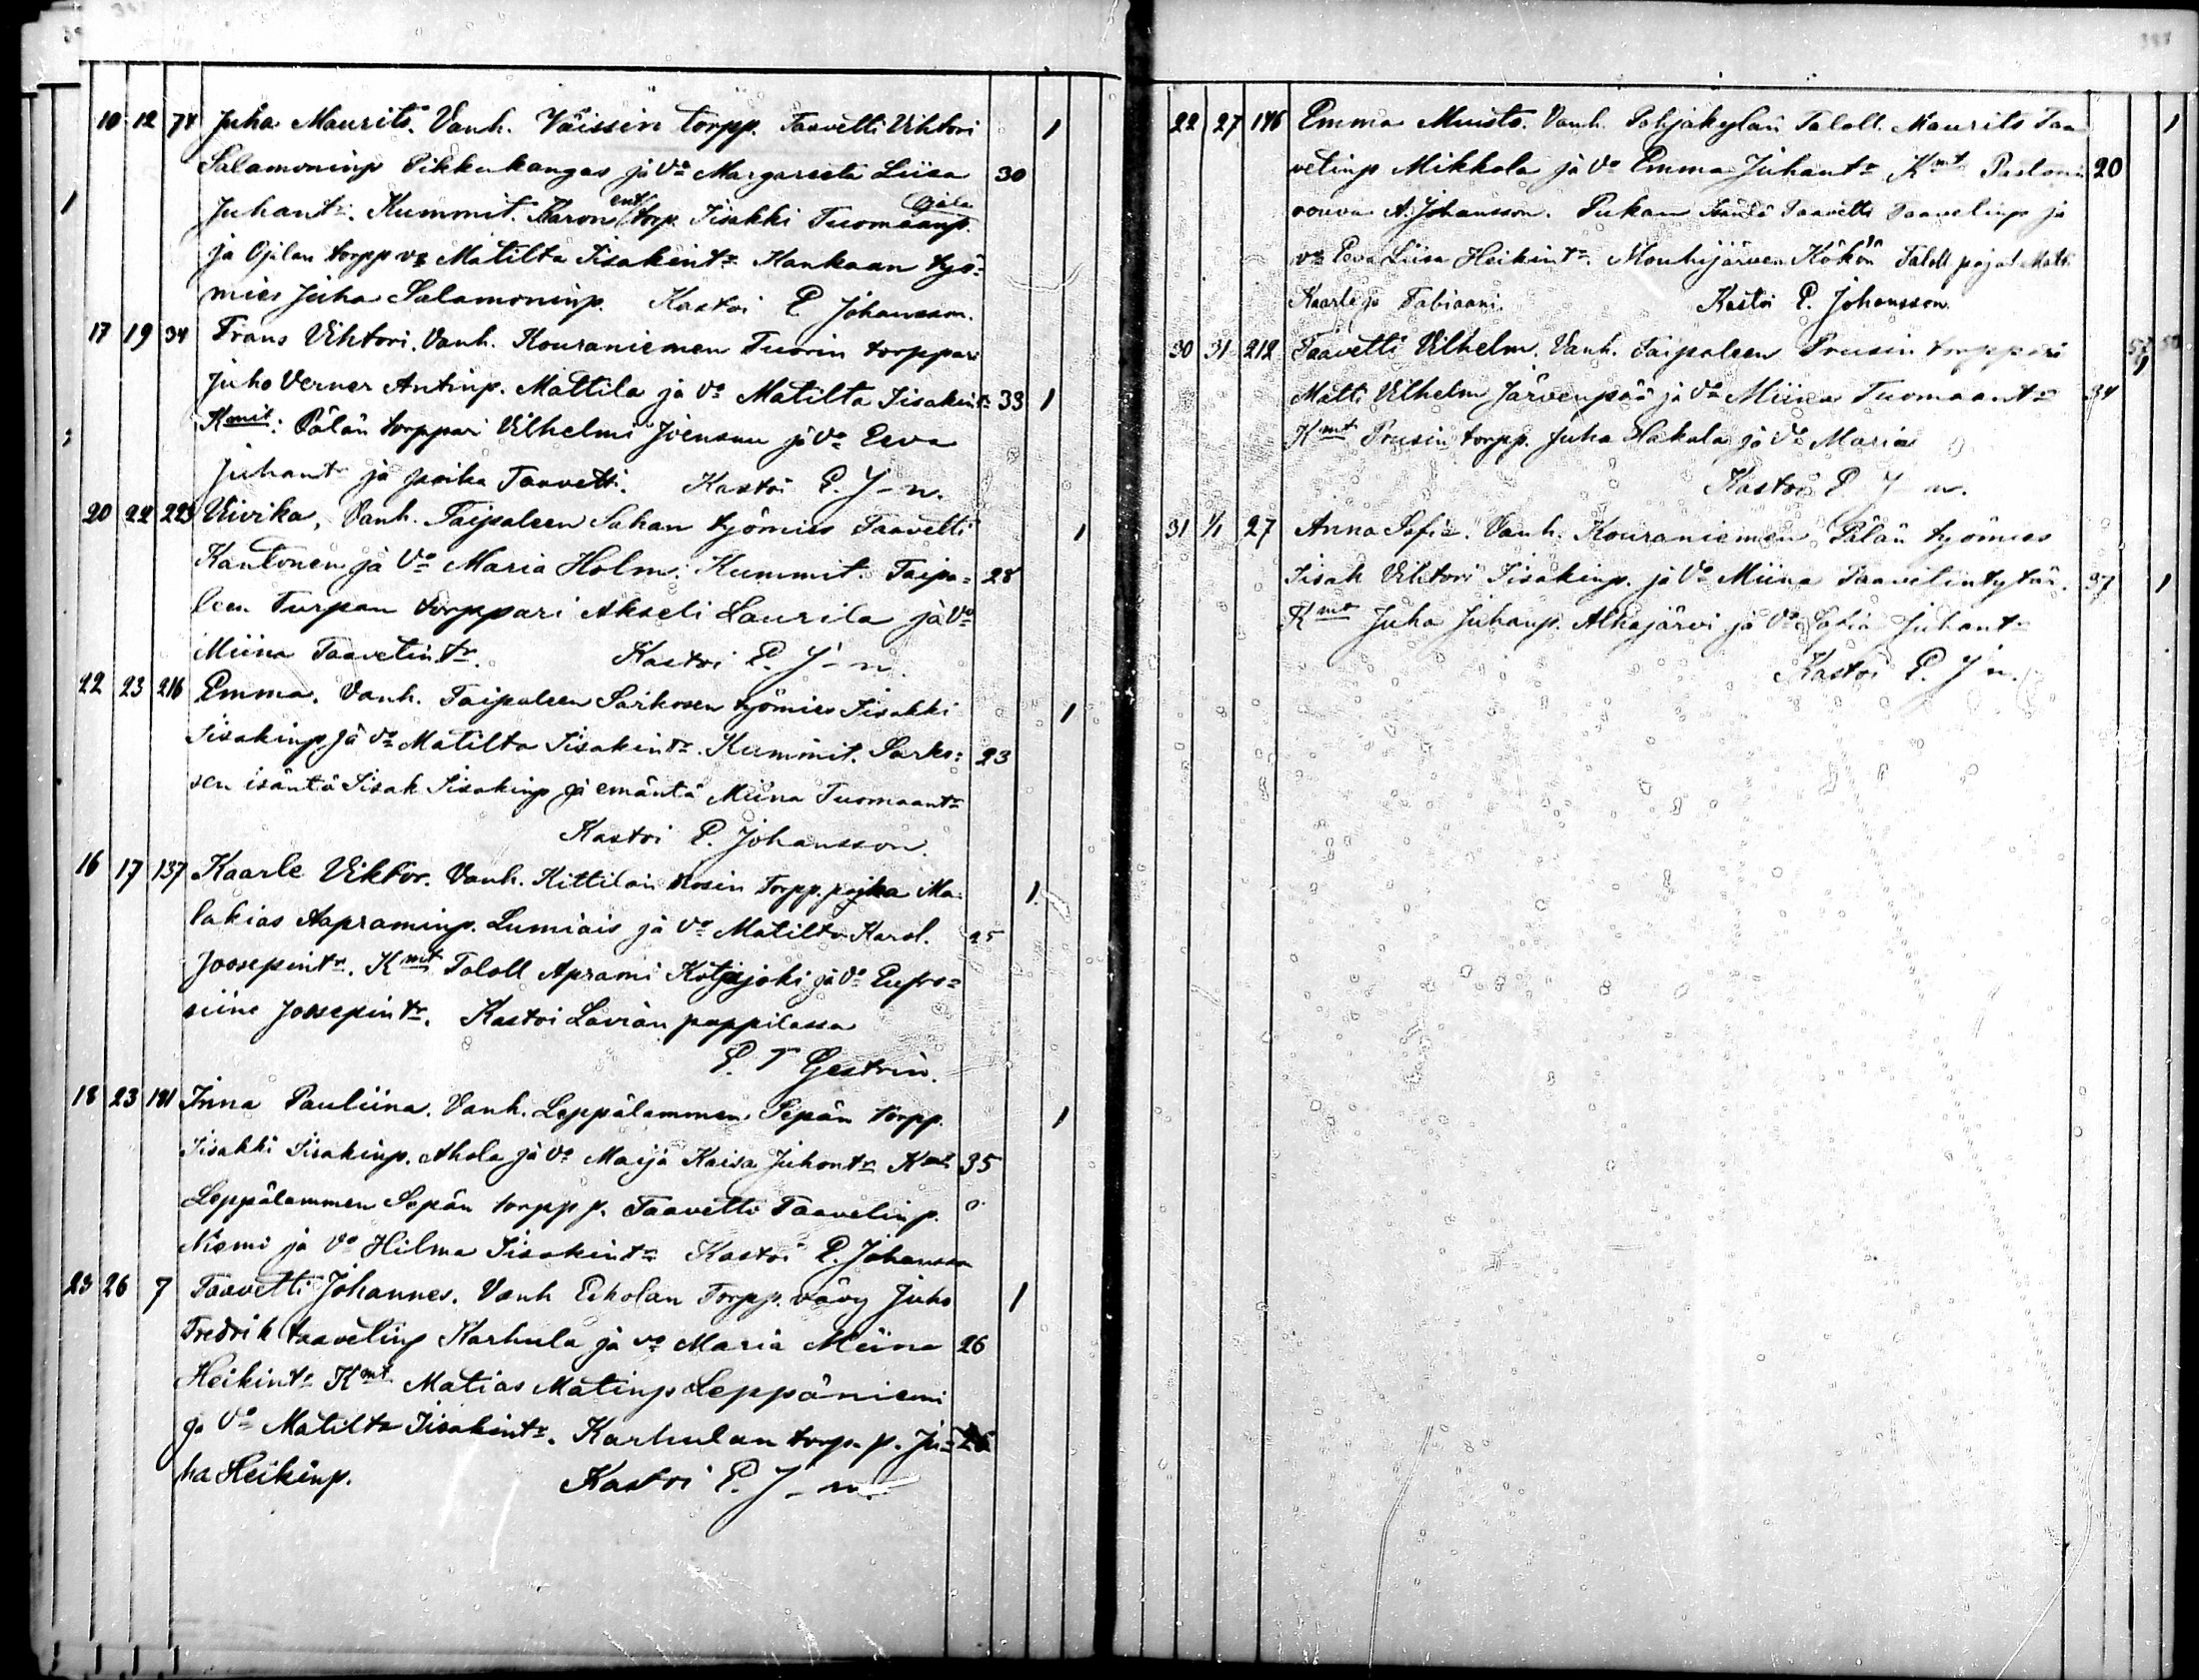 10 12 78 Juha Maurits. Vanh. Väissin torpp. Taavetti Vihtori 1
Salamoninp Pikkukangas ja Vo Margareeta Liisa 30
Juhantr. Kummit. Karon ent torp. Iisakki Tuomaanp. Ojala
ja Ojalan torpp vo Matilta Iisakintr Kankaan työ-
mies Juha Salamoninp. Kastoi P. Johansson.
17 19 34 Frans Vihtori. Vanh. Kouraniemen Tuorin torppari
Juho Verner Antinp. Mattila ja Vo Matilta Iisakintr 33 1
Kmit: Pälän torppari Vilhelmi Joensuu ja Vo Eeva
Juhantr ja poika Taavetti. Kastoi P. J-n.
20 22 223 Viivika, Vanh. Taipaleen Sahan työmies Taavetti 1
Kantonen ja Vo Maria Holm. Kummit. Taipa= 28
leen Turpan torppari Akseli Laurila ja Vo
Miina Taavetintr. Kastoi P. J-n.
22 23 216 Emma. Vanh. Taipaleen Sarkosen työmies Iisakki 1
Iisakinp ja Vo Matilta Iisakintr. Kummit. Sarko= 23
sen isäntä Iisak Iisakinp ja emäntä Miina Tuomaantr
Kastoi P. Johansson.
16 17 137 Kaarle Viktor. Vanh. Kittilän Torpp. pojka Ma- 1
lakias Aapraminp. Lumiais ja Vo Matilta Karol. 25
Joosepintr. Kmt Taloll Aprami Kotajoki ja Vo Eufro=
siine Joosepintr. Kastoi Lavian pappilassa
Gestrin.
18 23 181 Inna Pauliina. Vanh. Leppälammen Sepän torpp. 1
Iisakki Iisakinp. Ahola ja Vo Maija Kaisa Juhontr Kmt 35
Leppälammen Sepän torpp p. Taavetti Taavetinp.
Niemi ja Vo Hilma Iisakintr Kastoi P. Johansson
23 26 7 Taavetti Johannes. Vanh Eeholan Torpp. vävy Juho 1
Fredrik taavetinp Karhula ja vo Maria Miina 26
Heikintr Kmt Matias Matinp Leppäniemi
ja Vo Matilta Iisakintr. Karhulan torp. p. Ju-
ha Heikinp. Kastoi P. J-n.
22 27 146 Emma Muisto. Vanh. Pohjakylän Taloll. Maurits Taa 1
vetinp Mikkola ja Vo Emma Juhantr Kmt Pastorin 20
rouva A. Johansson. Pukan Isäntä Taavetti Taavetinp ja
vo Eeva Liisa Heikintr. Mouhijärven Kökön Taloll pojat Matti
Kaarle ja Fabiaani. Kastoi P. Johansson.
30 31 212 Taavetti Vilhelm. Vanh. Taipaleen Prusin torppari
Matti Vilhelm Järvenpää ja Vo Miina Tuomaantr 34
Kmt Prusin torpp. Juha Hakala ja Vo Maria
Kastoi P. J-n.
31 1/1 27 Anna Sofia. Vanh. Kouraniemen Pälän työmies
Iisak Vihtori Iisakinp. ja Vo Miina Taavetintytär. 37 1
Kmt Juha Juhanp. Alhajärvi ja Vo Sofia Juhantr
Kastoi P. J-n.